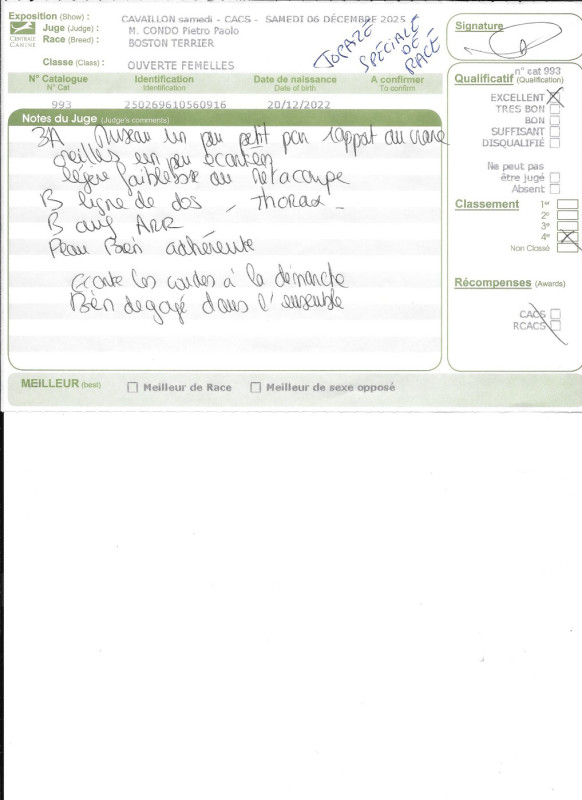 Exposition (Show) : CAVAILLON samedi - CACS - SAMEDI 06 DÉCEMBRE 2025
Juge (Judge) : M. CONDO Pietro Paolo
Race (Breed) : BOSTON TERRIER
CENTRALE
CANINE
Classe (Class) : OUVERTE FEMELLES
TOPAZE
SPÉCIALE
DE
RACE
Signature
N° Catalogue Identification Date de naissance A confirmer
N° Cat Identification Date of birth To confirm
993 250269610560916 20/12/2022
n° cat 993
Qualificatif (Qualification)
EXCELLENT
TRES BON
BON
SUFFISANT
DISQUALIFIÉ
Ne peut pas
être jugé
Absent
Notes du Juge (Judge's comments)
3A Museau un peu petit par rapport au crane
oreilles un peu
légère faiblesse au
B ligne de dos - Thorax -
B ARR
Peau Bien adhérente
écarte les coudes à la démarche
Bien dégagé dans l'ensemble
Classement 1er
2e
3e
4e
Non Classé
Récompenses (Awards)
CACS
RCACS
MEILLEUR (best) Meilleur de Race Meilleur de sexe opposé